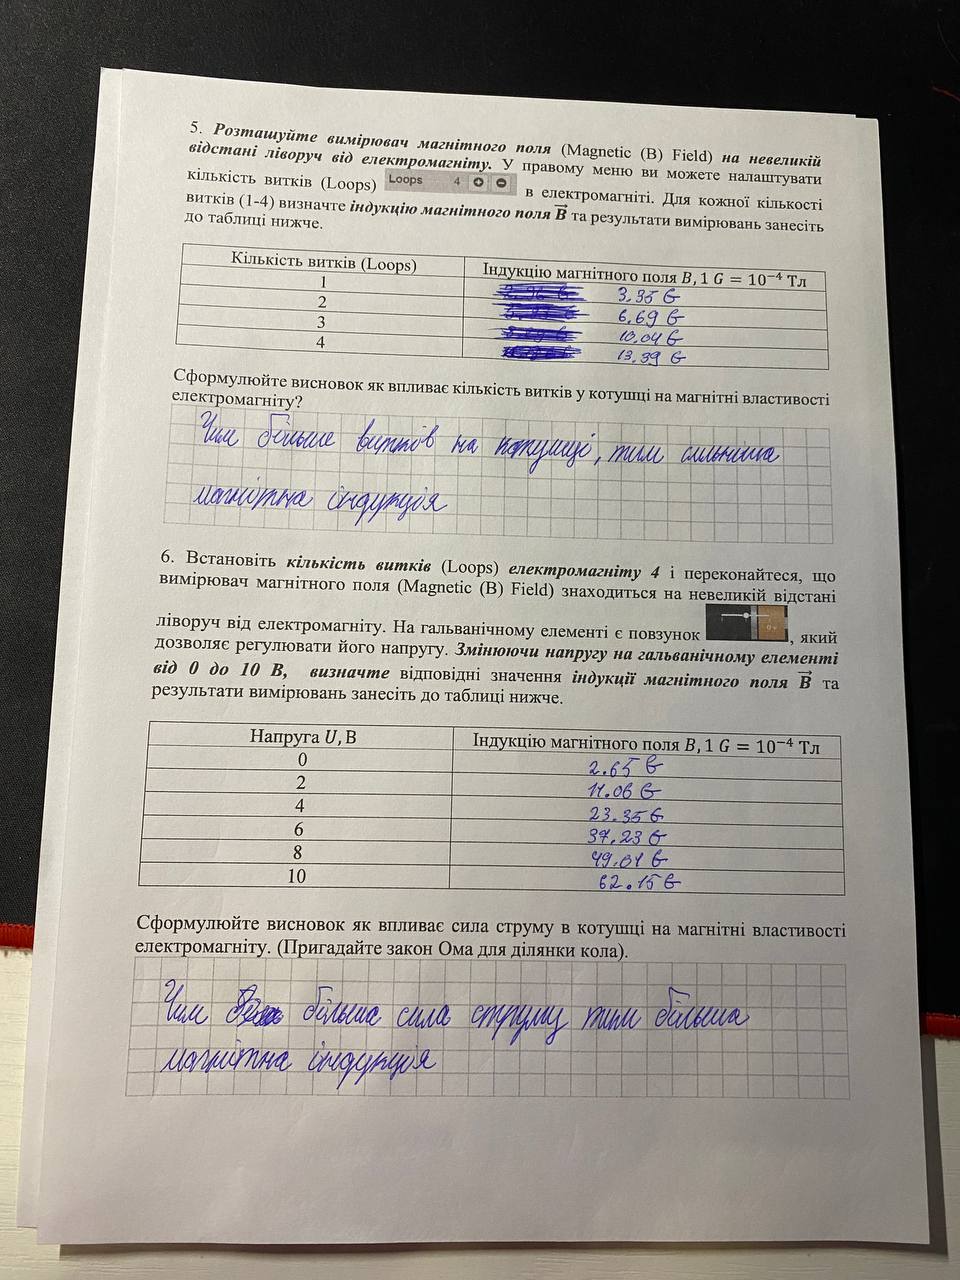 5. Розташуйте вимірювач магнітного поля (Magnetic (B) Field) на невеликій
відстані ліворуч від електромагніту. У правому меню ви можете налаштувати
кількість витків (Loops) Loops 4 + − в електромагніті. Для кожної кількості
витків (1-4) визначте індукцію магнітного поля B⃗ та результати вимірювань занесіть
до таблиці нижче.
Кількість витків (Loops) Індукцію магнітного поля B, 1 G = 10⁻⁴ Тл
1 3,35 G
2 6,69 G
3 10,04 G
4 13,39 G
Сформулюйте висновок як впливає кількість витків у котушці на магнітні властивості
електромагніту?
Чим більше витків на котушці, тим сильніша
магнітна індукція
6. Встановіть кількість витків (Loops) електромагніту 4 і переконайтеся, що
вимірювач магнітного поля (Magnetic (B) Field) знаходиться на невеликій відстані
ліворуч від електромагніту. На гальванічному елементі є повзунок , який
дозволяє регулювати його напругу. Змінюючи напругу на гальванічному елементі
від 0 до 10 В, визначте відповідні значення індукції магнітного поля B⃗ та
результати вимірювань занесіть до таблиці нижче.
Напруга U, В Індукцію магнітного поля B, 1 G = 10⁻⁴ Тл
0 2.65 G
2 11.06 G
4 23.35 G
6 37,23 G
8 49.01 G
10 62.15 G
Сформулюйте висновок як впливає сила струму в котушці на магнітні властивості
електромагніту. (Пригадайте закон Ома для ділянки кола).
Чим більша сила струму тим більша
магнітна індукція